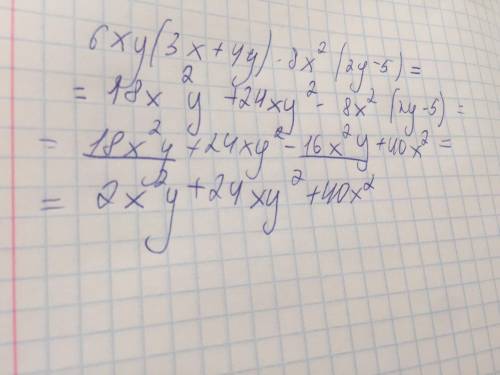 6xy(3x+4y)-8x²(2y-5)=
=18x²y+24xy²-8x²(2y-5)=
=18x²y+24xy²-16x²y+40x²=
=2x²y+24xy²+40x²